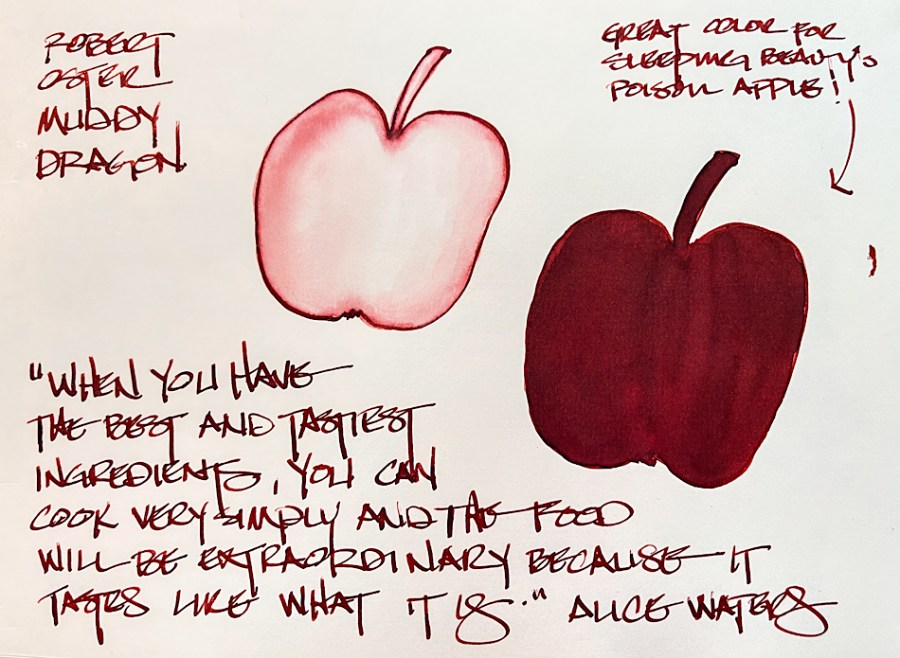 ROBERT
OSTER
MUDDY
DRAGON
GREAT COLOR FOR
SLEEPING BEAUTY'S
POISON APPLE!
"WHEN YOU HAVE
THE BEST AND TASTIEST
INGREDIENTS, YOU CAN
COOK VERY SIMPLY AND THE FOOD
WILL BE EXTRAORDINARY BECAUSE IT
TASTES LIKE WHAT IT IS." ALICE WATERS